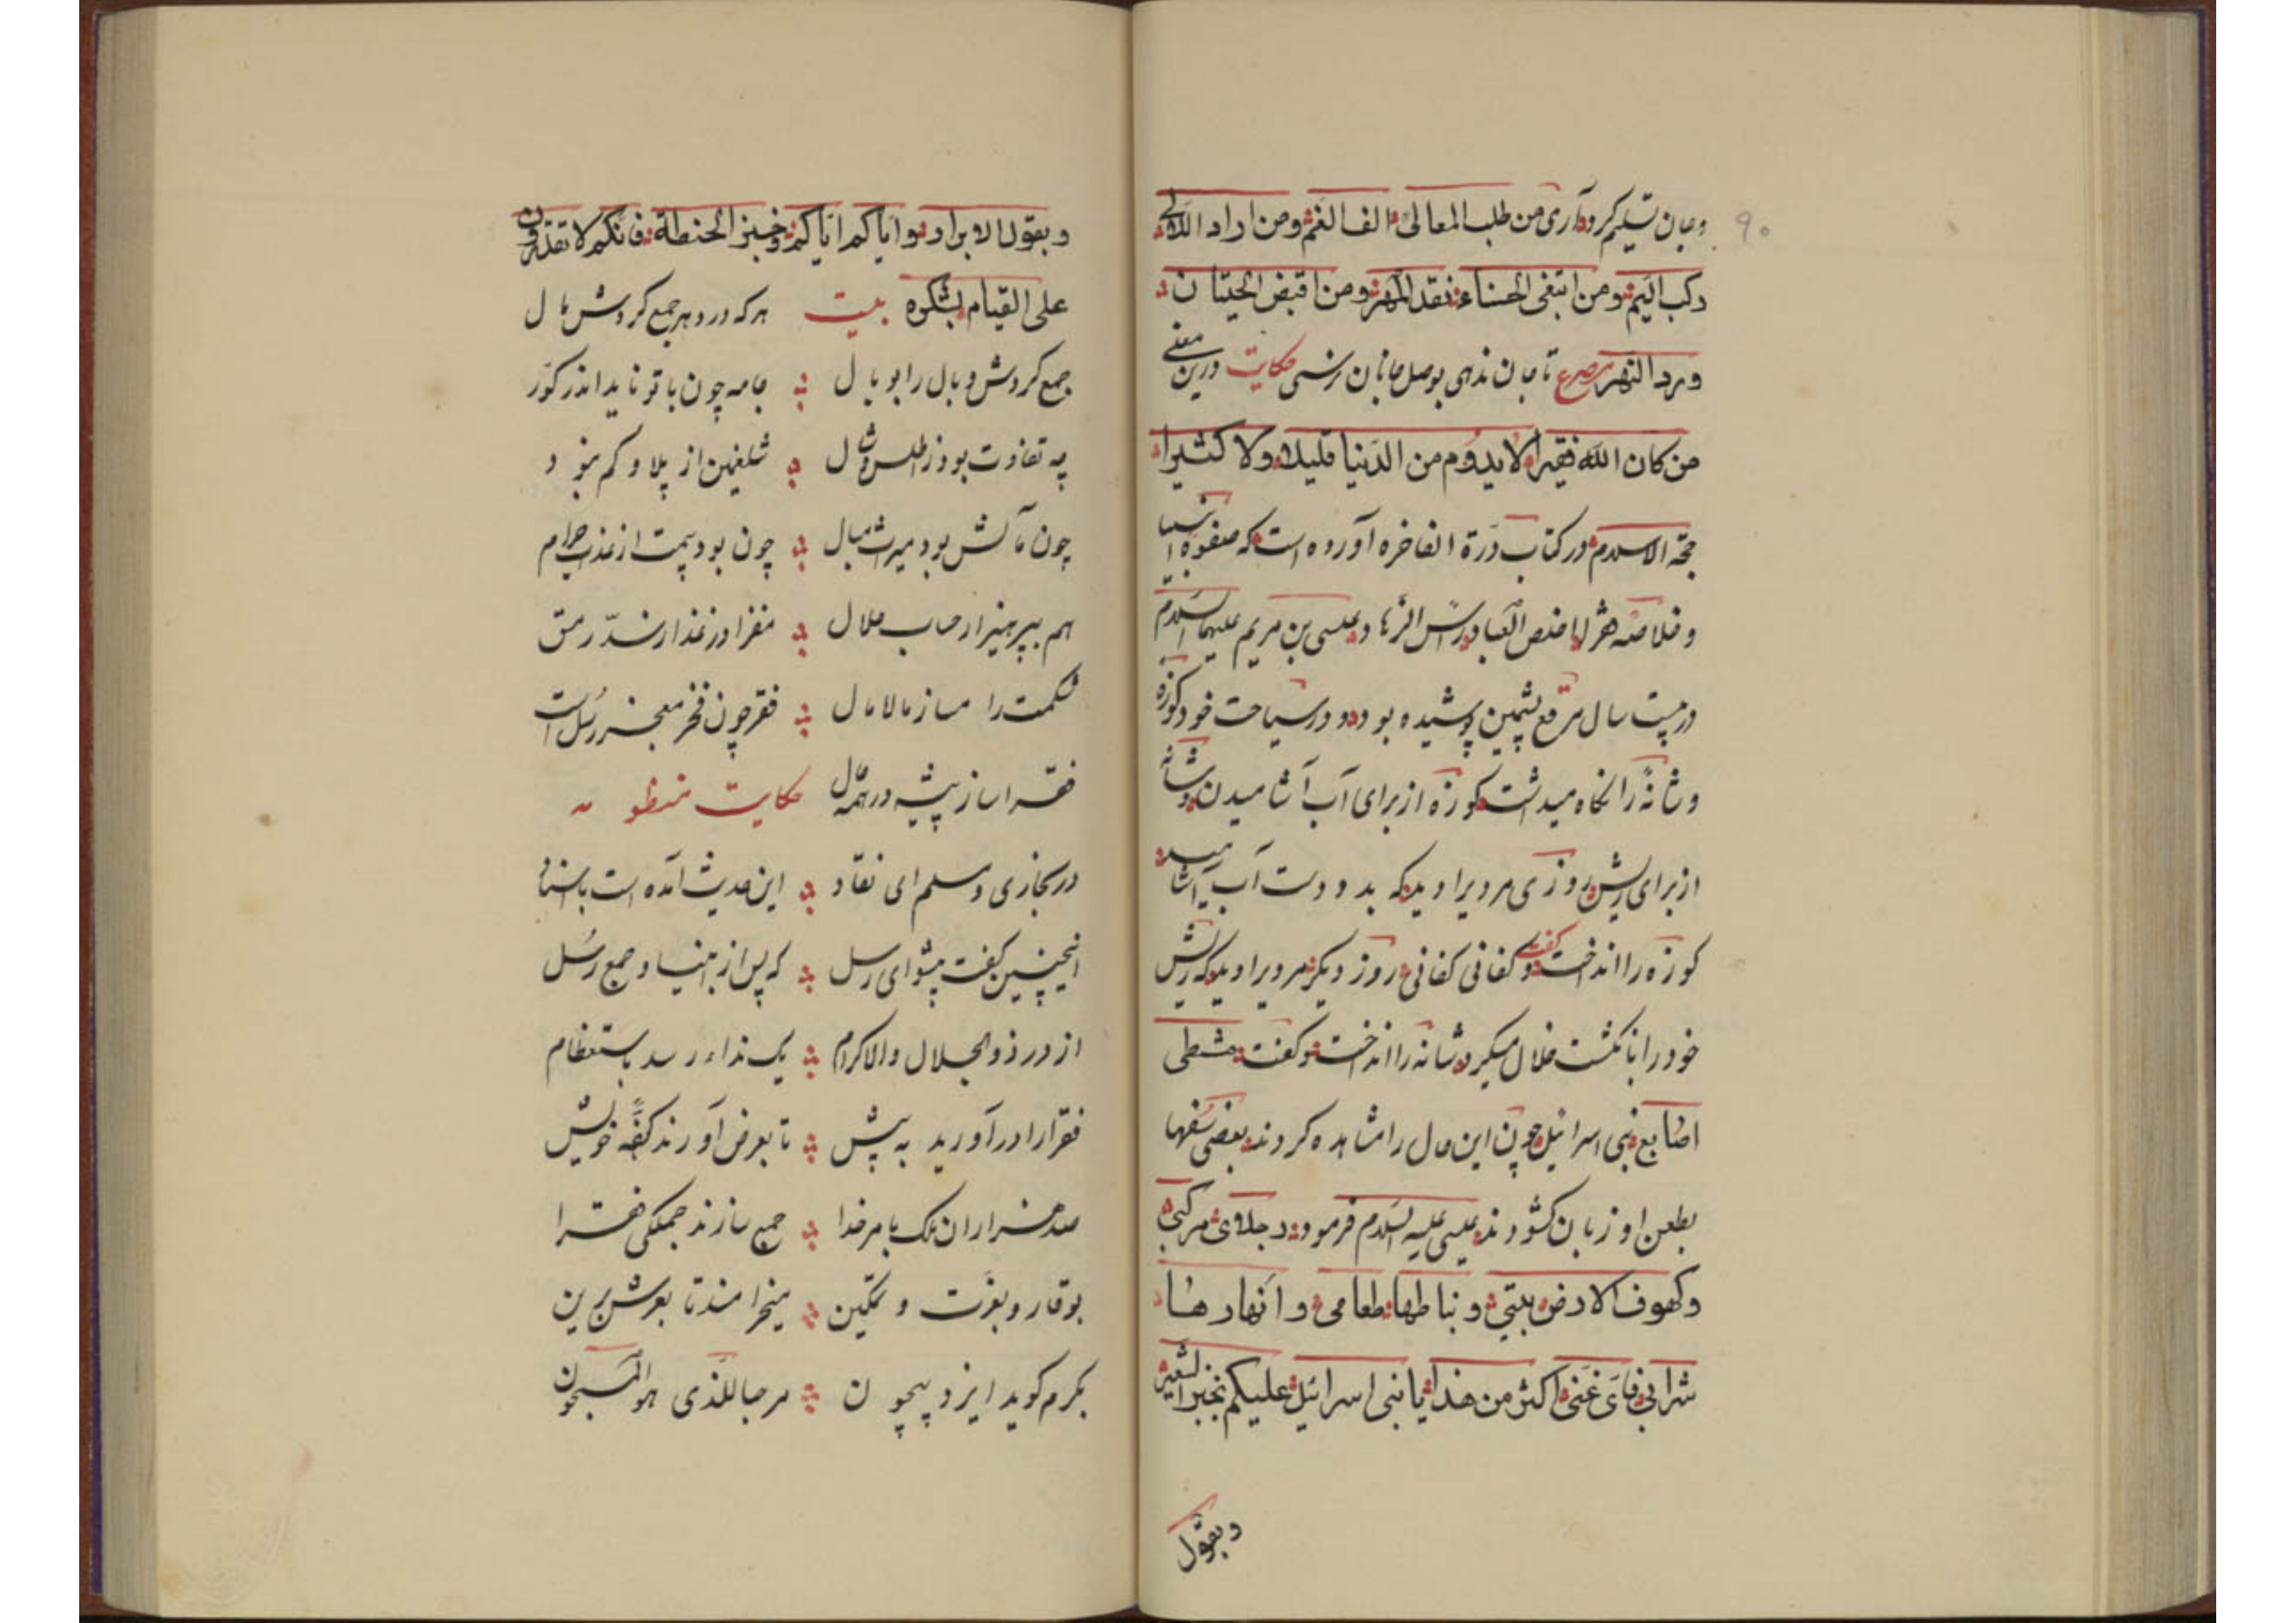 ۹۰
و جان تسلیم کرد آری من طلب المعالی الف الغم و من اراد اللآلی
رکب الیم و من ابتغی الحسناء نقد المهر و من اقبض الحیتان
ورد النهر مصرع تا جان ندهی بوصل جانان نرسی حکایت درین معنی
من کان الله فقیرا لا یدوم من الدنیا قلیلا ولا کثیرا
حجة الاسلام در کتاب درة الفاخره آورده است که صفوة انبیا
و خلاصه اخلص العباد و رأس الزهاد عیسی بن مریم علیهما السلام
در بیست سال مرقع پشمین پوشیده بود و در سیاحت خود کوزه
و شانهٔ را نگاه میداشت کوزه از برای آب آشامیدن و شانه
از برای ریش روزی مردیرا دید که بدو دست آب میآشامید
کوزه را انداخت و گفت کفانی کفانی روز دیگر مردیرا دید که ریش
خود را بانگشت خلال میکرد شانه را انداخت و گفت مشطی
اصابعی بنی اسرائیل چون این حال را مشاهده کردند بعضی سفها
بطعن او زبان کشودند عیسی علیه السلام فرمود رجلای مرکبی
و کهوف الارض بیتی و نباطها طعامی و انهارها
شرابی فای غنی اکثر من هذا یا بنی اسرائیل علیکم بخبز الشعیر
و بقول
و بقول الابرار و ایاکم ایاکم و خبز الحنطة فانکم لا تقدرون
علی القیام بشکره بیت هر که در دهر جمع کردش مال
جمع کردش وبال را بوبال جامه چون با تو ناید اندر کور
چه تفاوت بود ز اطلس و شال شلغمین از پلاو کم نبود
چون مآلش بود میرث مبال چون بود بیمت از عذاب حرام
هم بپرهیز از حساب حلال مغز اور غذا ز سدّ رمق
شکمت را مساز مالامال فقر چون فخر معجز رسل است
فقر را ساز پیشه در همه حال حکایت منظومه
در بخاری و مسلم ای نقاد این حدیث آمده است باسناد
اینچنین گفت پیشوای رسل که پس از انبیا و جمع رسل
از در ذو الجلال والاکرام یک نداء رسد باستعظام
فقرا را در آورید به پیش تا بعرض آورند کفهٔ خویش
صد هزاران ملک بامر خدا جمع سازند جملگی فقرا
بوقار و بعزت و تمکین میخرامند تا بعرش برین
بکرم گوید ایزد بیچون مرحبا للذی هو المسجون